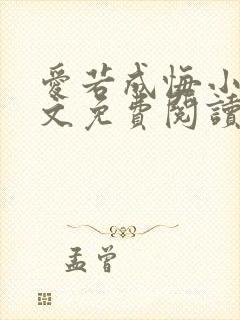 愛若成悔小
文免費閱讀
孟曾